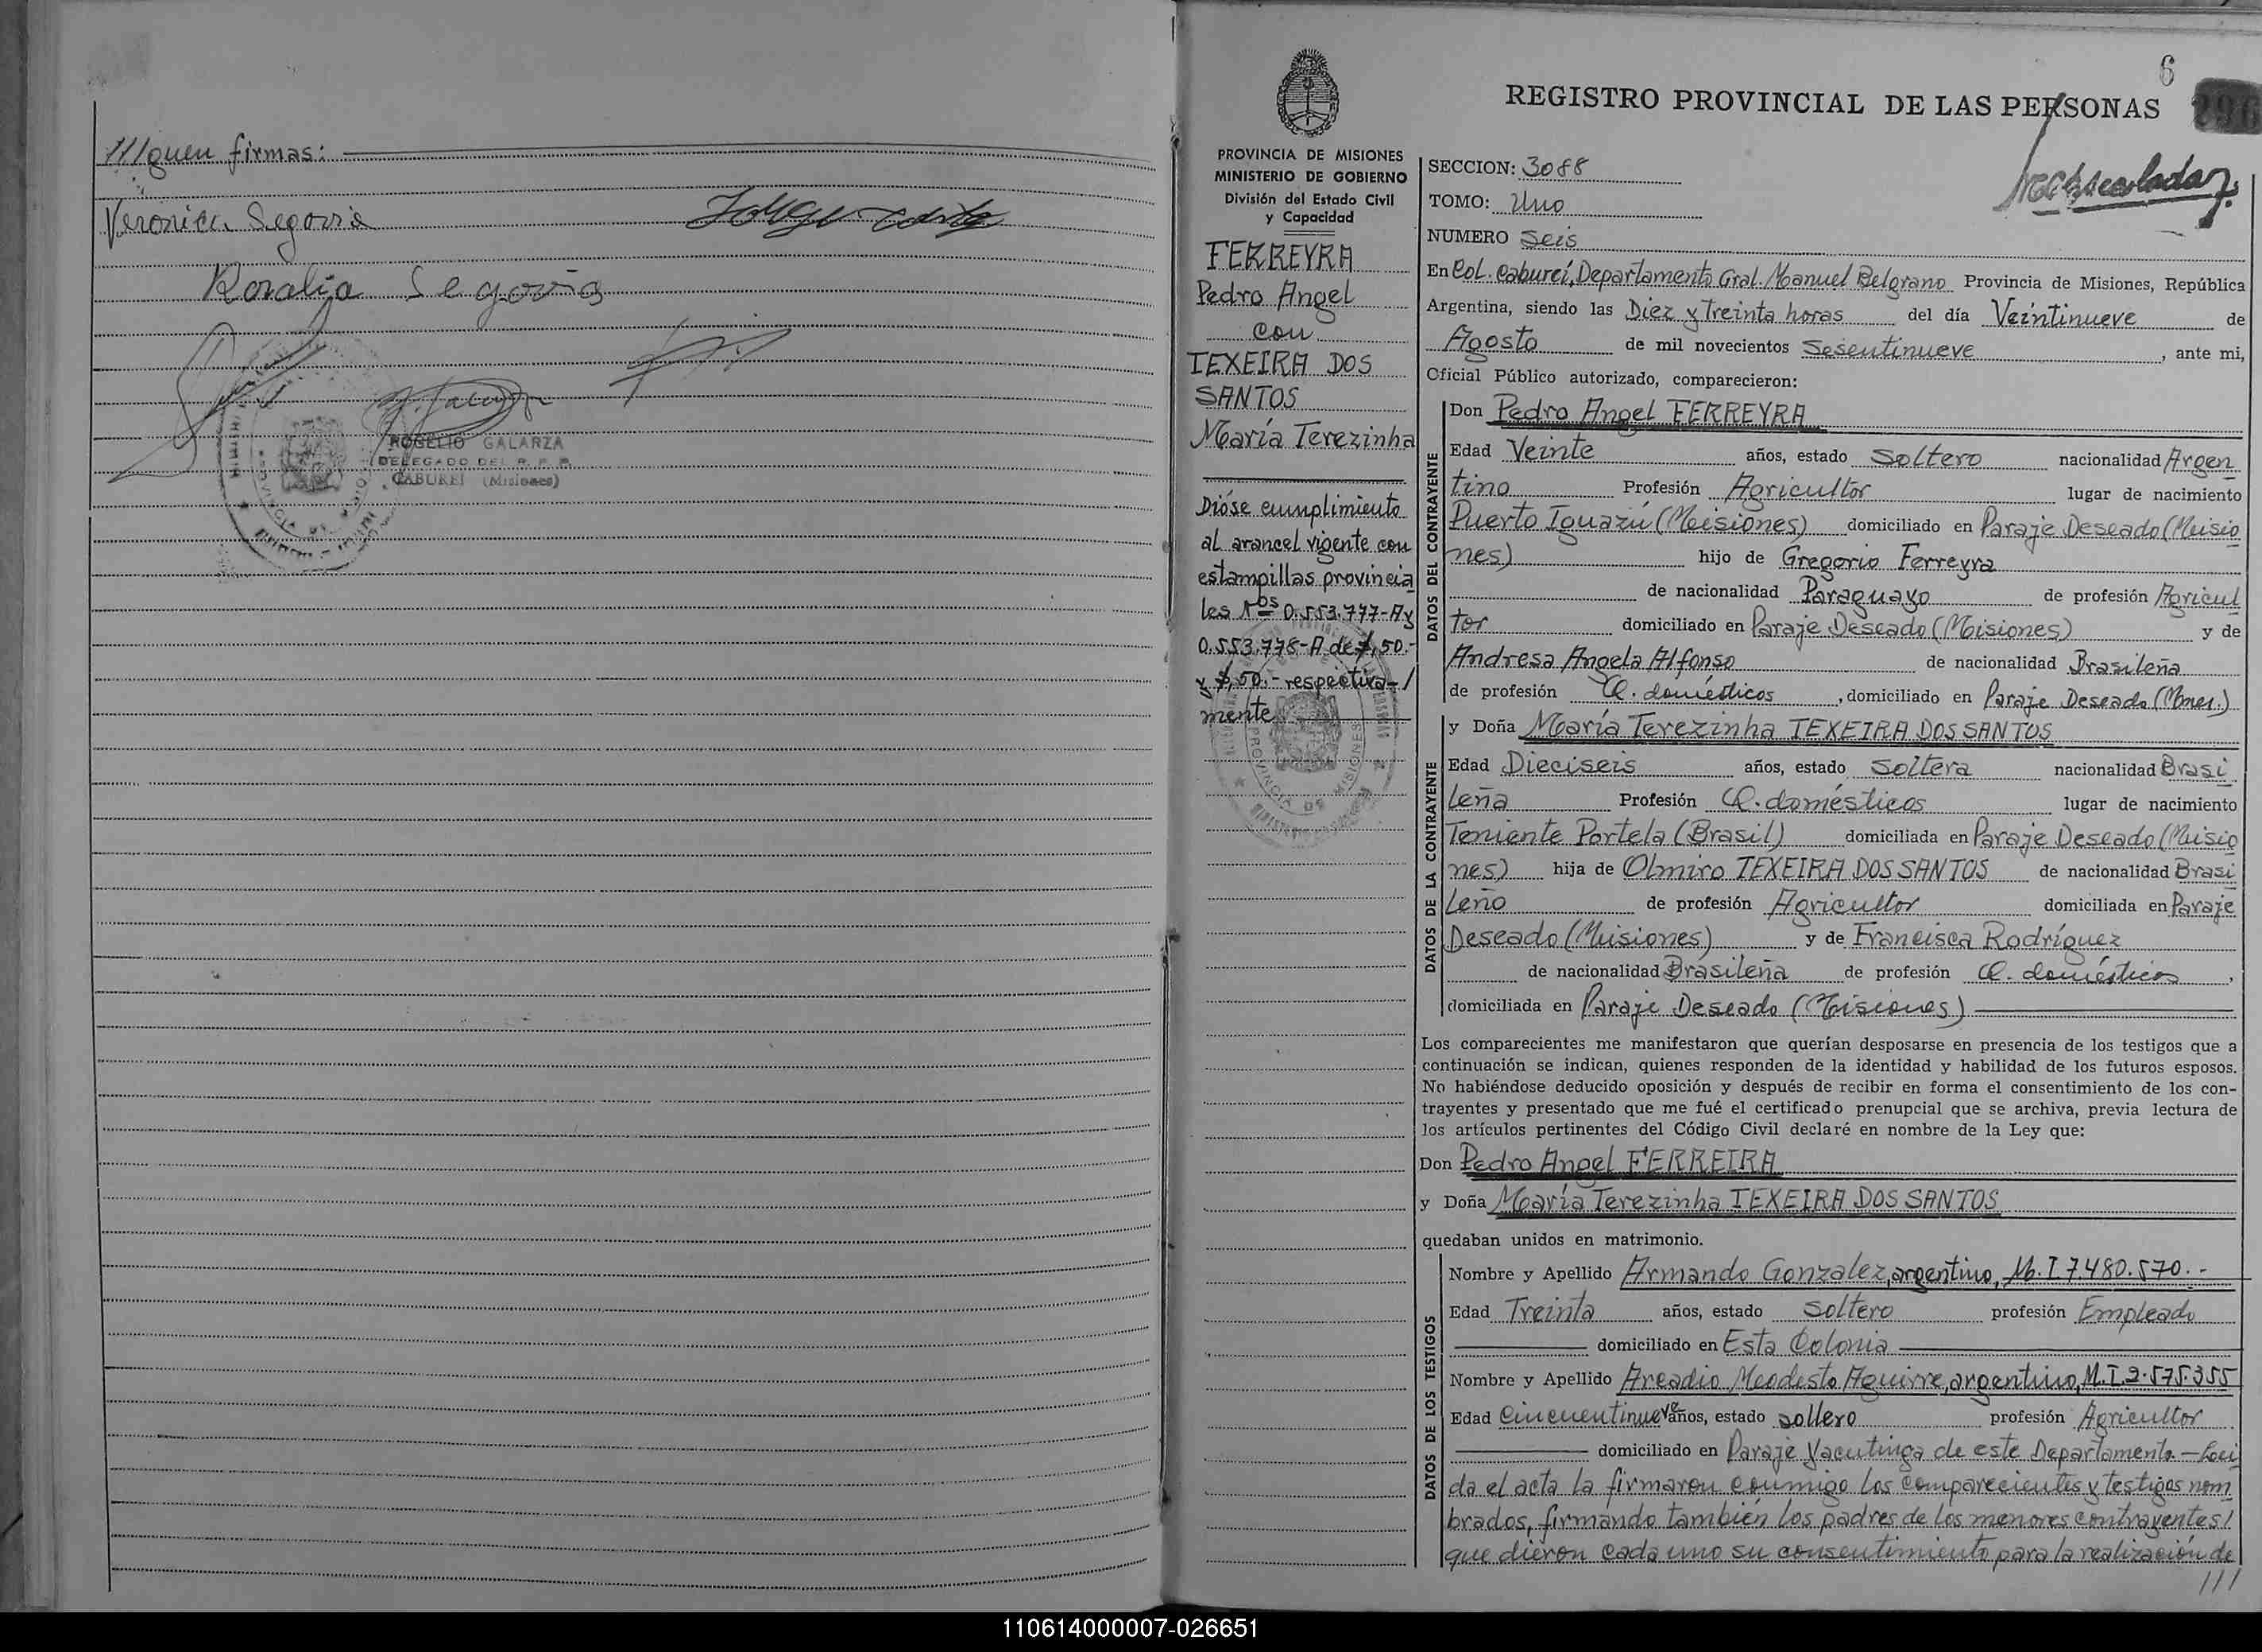 ///guen firmas:
Veronica Segovia
Rosalia Segovia
ROGELIO GALARZA
DELEGADO DEL R. P. P.
CABUREI (Misiones)
6
296
REGISTRO PROVINCIAL DE LAS PERSONAS
PROVINCIA DE MISIONES
MINISTERIO DE GOBIERNO
División del Estado Civil
y Capacidad
FERREYRA
Pedro Angel
con
TEXEIRA DOS
SANTOS
María Terezinha
Dióse cumplimiento
al arancel vigente con
estampillas provincia
les Nos 0.553.777-A y
0.553.778-A de $1,50.-
y $1,50.- respectiva-/
mente.
SECCION: 3088
TOMO: Uno
NUMERO Seis
En Col. Caburei, Departamento Gral. Manuel Belgrano Provincia de Misiones, República
Argentina, siendo las Diez y Treinta horas del día Veintinueve de
Agosto de mil novecientos Sesentinueve, ante mi,
Oficial Público autorizado, comparecieron:
DATOS DEL CONTRAYENTE
Don Pedro Angel FERREYRA
Edad Veinte años, estado Soltero nacionalidad Argen
tino Profesión Agricultor lugar de nacimiento
Puerto Iguazú (Misiones) domiciliado en Paraje Deseado (Misio
nes) hijo de Gregorio Ferreyra
de nacionalidad Paraguayo de profesión Agricul
tor domiciliado en Paraje Deseado (Misiones) y de
Andresa Angela Alfonso de nacionalidad Brasileña
de profesión Q. domésticos, domiciliado en Paraje Deseado (Mnes.)
DATOS DE LA CONTRAYENTE
y Doña María Terezinha TEXEIRA DOS SANTOS
Edad Dieciseis años, estado Soltera nacionalidad Brasi
leña Profesión Q. domésticos lugar de nacimiento
Teniente Portela (Brasil) domiciliada en Paraje Deseado (Misio
nes) hija de Olmiro TEXEIRA DOS SANTOS de nacionalidad Brasi
leño de profesión Agricultor domiciliada en Paraje
Deseado (Misiones) y de Francisca Rodríguez
de nacionalidad Brasileña de profesión Q. domésticos,
domiciliada en Paraje Deseado (Misiones)
Los comparecientes me manifestaron que querían desposarse en presencia de los testigos que a
continuación se indican, quienes responden de la identidad y habilidad de los futuros esposos.
No habiéndose deducido oposición y después de recibir en forma el consentimiento de los con-
trayentes y presentado que me fué el certificado prenupcial que se archiva, previa lectura de
los artículos pertinentes del Código Civil declaré en nombre de la Ley que:
Don Pedro Angel FERREIRA
y Doña María Terezinha TEXEIRA DOS SANTOS
quedaban unidos en matrimonio.
DATOS DE LOS TESTIGOS
Nombre y Apellido Armando Gonzalez, argentino, M.I. 7.480.570.-
Edad Treinta años, estado Soltero profesión Empleado
domiciliado en Esta Colonia
Nombre y Apellido Arcadio Modesto Aguirre, argentino, M.I. 2.575.355
Edad Cincuentinueve años, estado soltero profesión Agricultor
domiciliado en Paraje Yacutinga de este Departamento.- Leí
da el acta la firmaron conmigo los comparecientes y testigos nom
brados, firmando también los padres de los menores contrayentes/
que dieron cada uno su consentimiento para la realización de
///
110614000007-026651